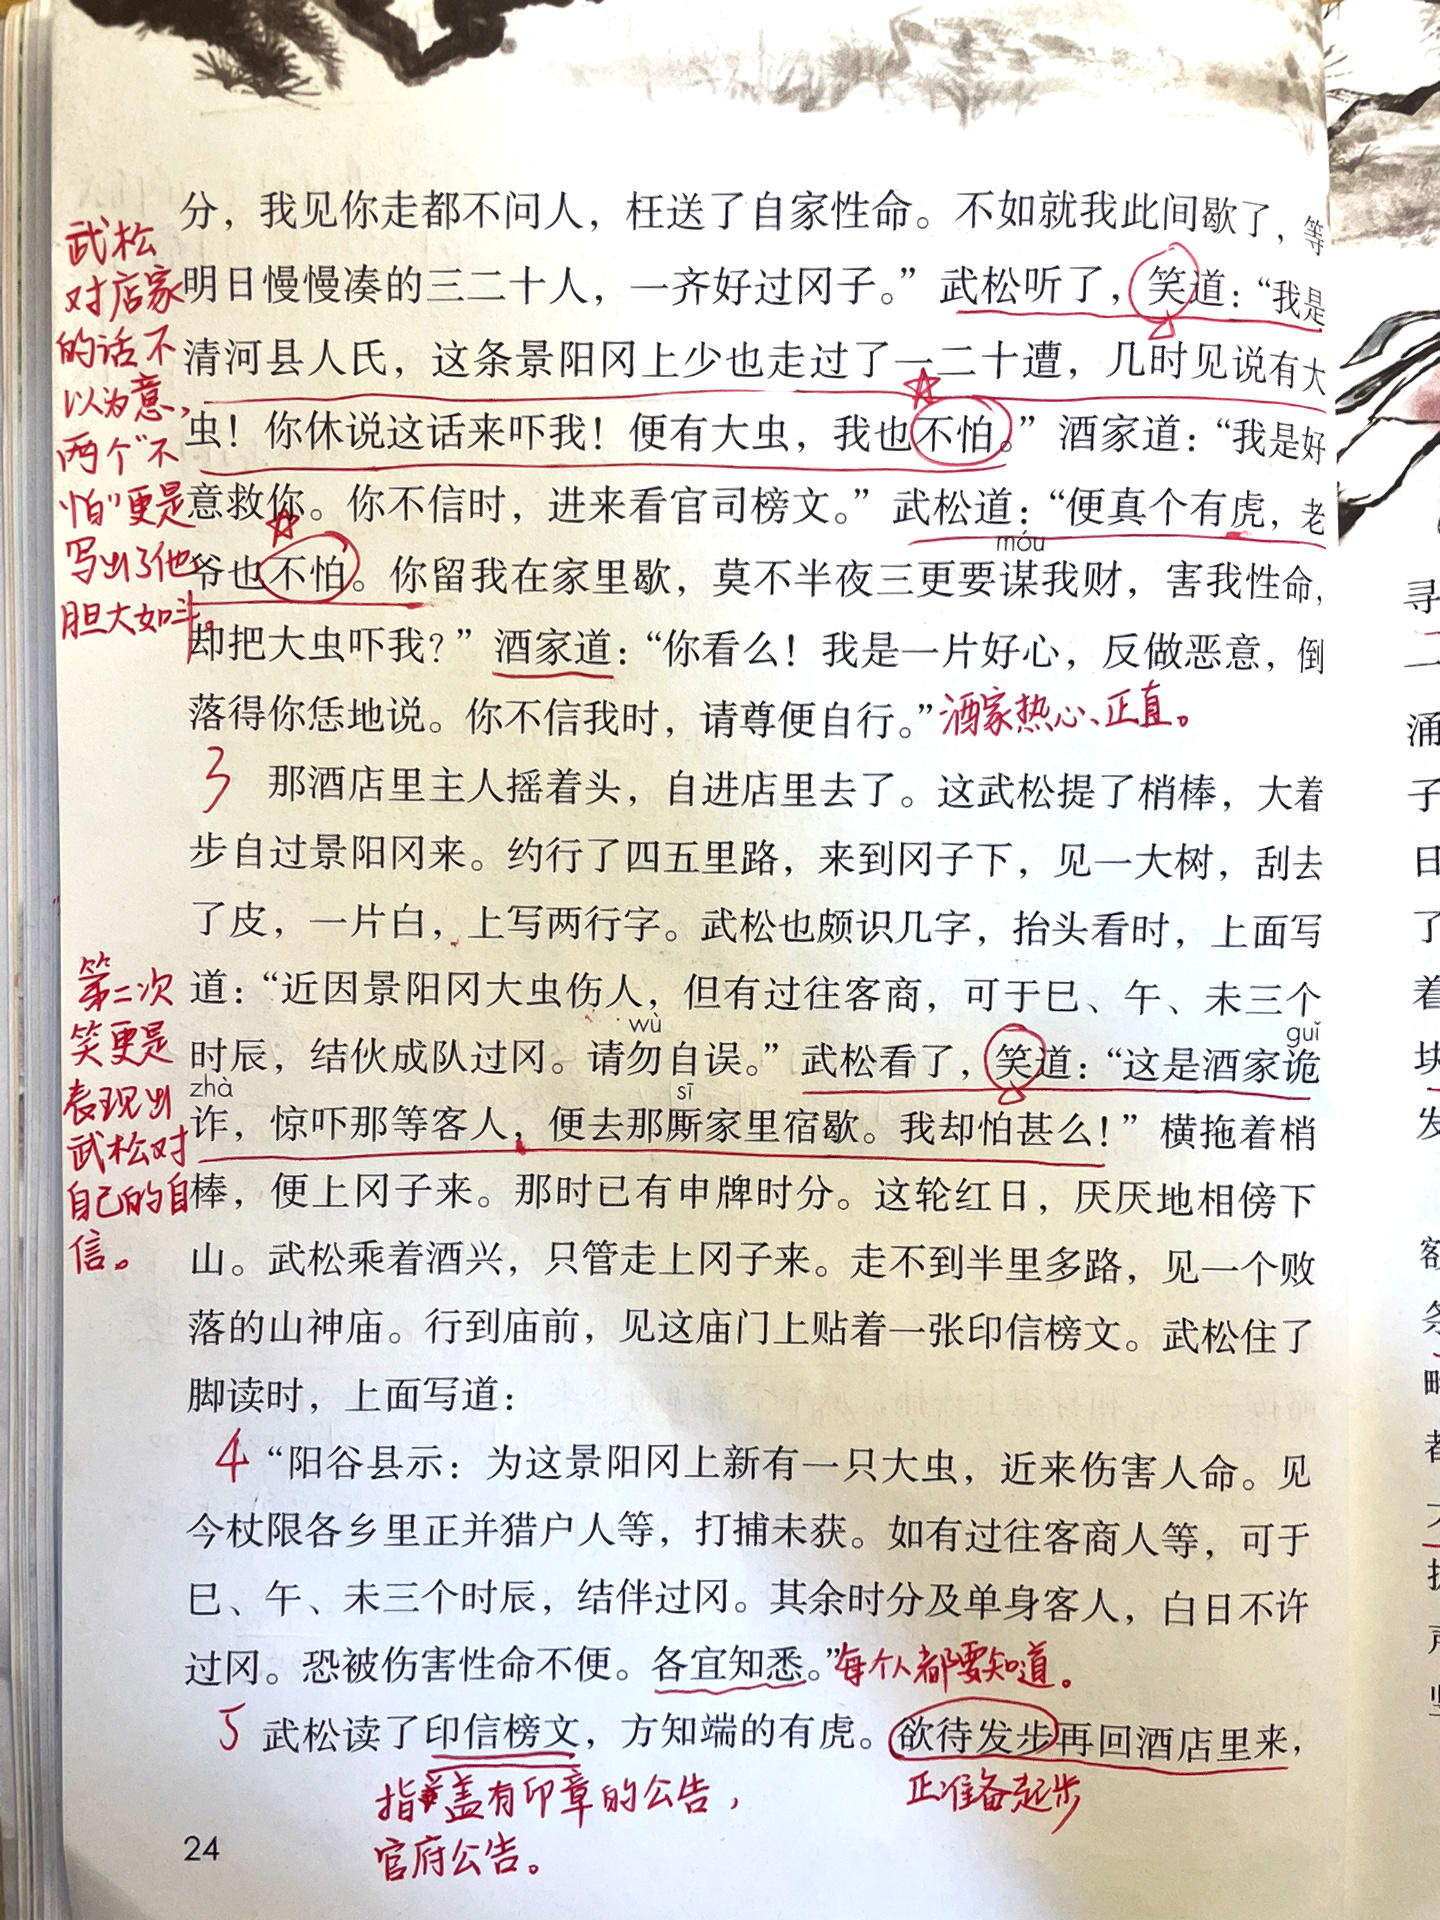 分，我见你走都不问人，枉送了自家性命。不如就我此间歇了，等
明日慢慢凑的三二十人，一齐好过冈子。”武松听了，笑道：“我是
清河县人氏，这条景阳冈上少也走过了一二十遭，几时见说有大
虫！你休说这话来吓我！便有大虫，我也不怕。”酒家道：“我是好
意救你。你不信时，进来看官司榜文。”武松道：“便真个有虎，老
móu
爷也不怕。你留我在家里歇，莫不半夜三更要谋我财，害我性命，
却把大虫吓我？”酒家道：“你看么！我是一片好心，反做恶意，倒
落得你恁地说。你不信我时，请尊便自行。”酒家热心、正直。
武松
对店家
的话不
以为意，
两个“不
怕”更是
写出了他
胆大如斗。
3 那酒店里主人摇着头，自进店里去了。这武松提了梢棒，大着
步自过景阳冈来。约行了四五里路，来到冈子下，见一大树，刮去
了皮，一片白，上写两行字。武松也颇识几字，抬头看时，上面写
道：“近因景阳冈大虫伤人，但有过往客商，可于巳、午、未三个
wù guǐ
时辰，结伙成队过冈。请勿自误。”武松看了，笑道：“这是酒家诡
zhà sī
诈，惊吓那等客人，便去那厮家里宿歇。我却怕甚么！”横拖着梢
棒，便上冈子来。那时已有申牌时分。这轮红日，厌厌地相傍下
山。武松乘着酒兴，只管走上冈子来。走不到半里多路，见一个败
落的山神庙。行到庙前，见这庙门上贴着一张印信榜文。武松住了
脚读时，上面写道：
第二次
笑更是
表现出
武松对
自己的自
信。
4 “阳谷县示：为这景阳冈上新有一只大虫，近来伤害人命。见
今杖限各乡里正并猎户人等，打捕未获。如有过往客商人等，可于
巳、午、未三个时辰，结伴过冈。其余时分及单身客人，白日不许
过冈。恐被伤害性命不便。各宜知悉。”每个人都要知道。
5 武松读了印信榜文，方知端的有虎。欲待发步再回酒店里来，
指盖有印章的公告，
官府公告。
正准备起步
24
寻
二
涌
子
日
了
着
块
发